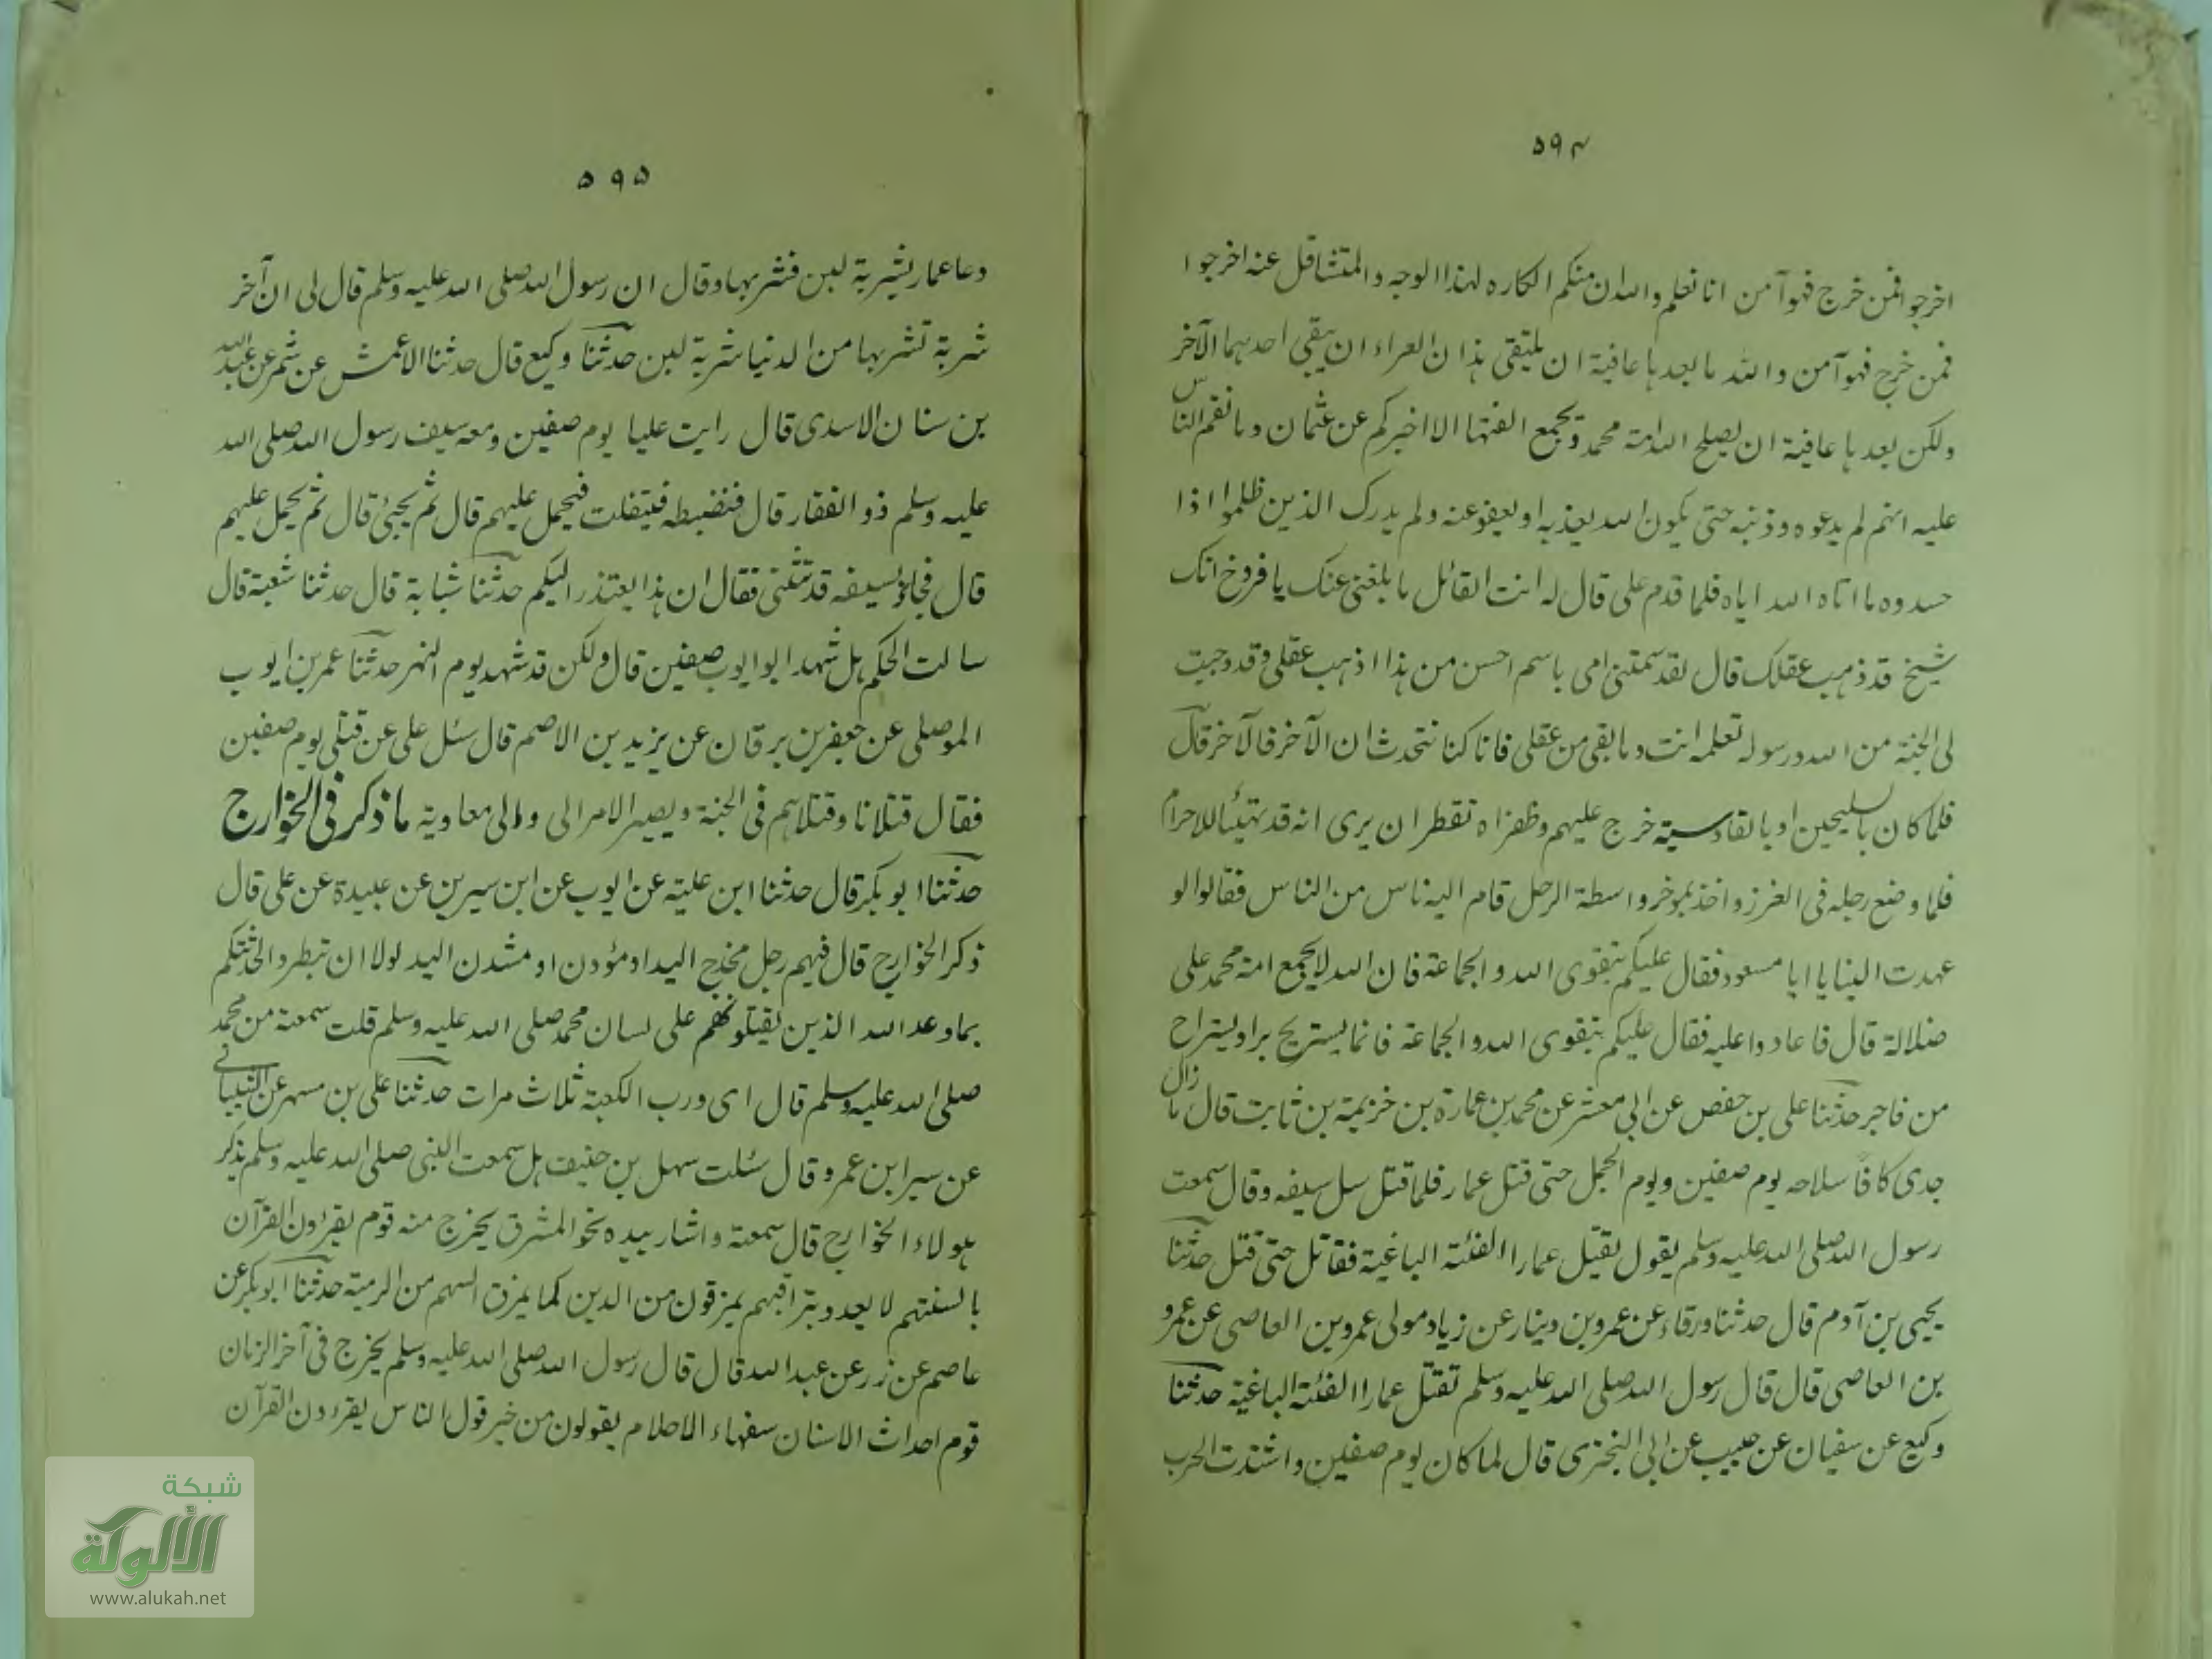 ۵۹۴
اخرجوا فمن خرج فهو آمن انا نعلم والله ان منكم الكاره لهذا الوجه والمتثاقل عنه اخرجوا
فمن خرج فهو آمن والله ما بعدها عافية ان يلتقي هذان العراء ان يبقي احدهما الآخر
ولكن بعدها عافية ان يصلح الله امة محمد ويجمع الفتها الا اخبركم عن عثمان وما نقم الناس
عليه انهم لم يدعوه وذنبه حتى يكون الله يعذبه او يعفو عنه ولم يدرك الذين ظلموا اذا
حسدوه ما اتاه الله اياه فلما قدم على قال له انت القائل ما بلغني عنك يا فروخ انك
شيخ قد ذهب عقلك قال لقد سمتني امى باسم احسن من هذا اذهب عقلى وقد وجبت
لى الجنة من الله ورسوله تعلمه انت وما بقى من عقلى فانا كنا نتحدث ان الآخر فالآخر قال
فلما كان بالسليحين او بالقادسية خرج عليهم وظفراه تقطران يرى انه قد تهيئأ للاحرام
فلما وضع رجله فى الغرز واخذ بموخر واسطة الرحل قام اليه ناس من الناس فقالوا لو
عهدت الينا يا ابا مسعود فقال عليكم بتقوى الله والجماعة فان الله لا يجمع امة محمد على
ضلالة قال فاعادوا عليه فقال عليكم بتقوى الله والجماعة فانما يستريح بر او يستراح
من فاجر حدثنا على بن حفص عن ابى معشر عن محمد بن عمارة بن خزيمة بن ثابت قال ما زال
جدى كافاً سلاحه يوم صفين ويوم الجمل حتى قتل عمار فلما قتل سل سيفه وقال سمعت
رسول الله صلى الله عليه وسلم يقول يقتل عمارا الفئة الباغية فقاتل حتى قتل حدثنا
يحيى بن آدم قال حدثنا ورقاء عن عمرو بن دينار عن زياد مولى عمرو بن العاصى عن عمرو
بن العاصى قال قال رسول الله صلى الله عليه وسلم تقتل عمارا الفئة الباغية حدثنا
وكيع عن سفيان عن حبيب عن ابى البخترى قال لما كان يوم صفين واشتدت الحرب
۵۹۵
دعا عمار بشربة لبن فشربها وقال ان رسول الله صلى الله عليه وسلم قال لى ان آخر
شربة تشربها من الدنيا شربة لبن حدثنا وكيع قال حدثنا الاعمش عن شمر عن عبد الله
بن سنان الاسدى قال رايت عليا يوم صفين ومعه سيف رسول الله صلى الله
عليه وسلم ذو الفقار قال فنضبطه فيتفلت فيحمل عليهم قال ثم يجيئ قال ثم يحمل عليهم
قال فجاؤ بسيفه قد تثنى فقال ان هذا يعتذر اليكم حدثنا شبابة قال حدثنا شعبة قال
سالت الحكم هل شهد ابو ايوب صفين قال ولكن قد شهد يوم النهر حدثنا عمر بن ايوب
الموصلى عن جعفر بن برقان عن يزيد بن الاصم قال سئل على عن قتلى يوم صفين
فقال قتلانا وقتلاهم فى الجنة ويصير الامر الى والى معاوية ما ذكر فى الخوارج
حدثنا ابو بكر قال حدثنا ابن علية عن ايوب عن ابن سيرين عن عبيدة عن على قال
ذكر الخوارج قال فيهم رجل مخدج اليد او مؤدن او مشدن اليد لولا ان تبطروا لحدثتكم
بما وعد الله الذين يقتلونهم على لسان محمد صلى الله عليه وسلم قلت سمعته من محمد
صلى الله عليه وسلم قال اى ورب الكعبة ثلاث مرات حدثنا على بن مسهر عن الشيبانى
عن سير ابن عمرو قال سئلت سهل بن حنيف هل سمعت النبى صلى الله عليه وسلم يذكر
هولاء الخوارج قال سمعته واشار بيده نحو المشرق يخرج منه قوم يقرءون القرآن
بالسنتهم لا يعدو تراقيهم يمرقون من الدين كما يمرق السهم من الرمية حدثنا ابو بكر عن
عاصم عن زر عن عبد الله قال قال رسول الله صلى الله عليه وسلم يخرج فى آخر الزمان
قوم احداث الاسنان سفهاء الاحلام يقولون من خير قول الناس يقرءون القرآن
شبكة
الألوكة
www.alukah.net